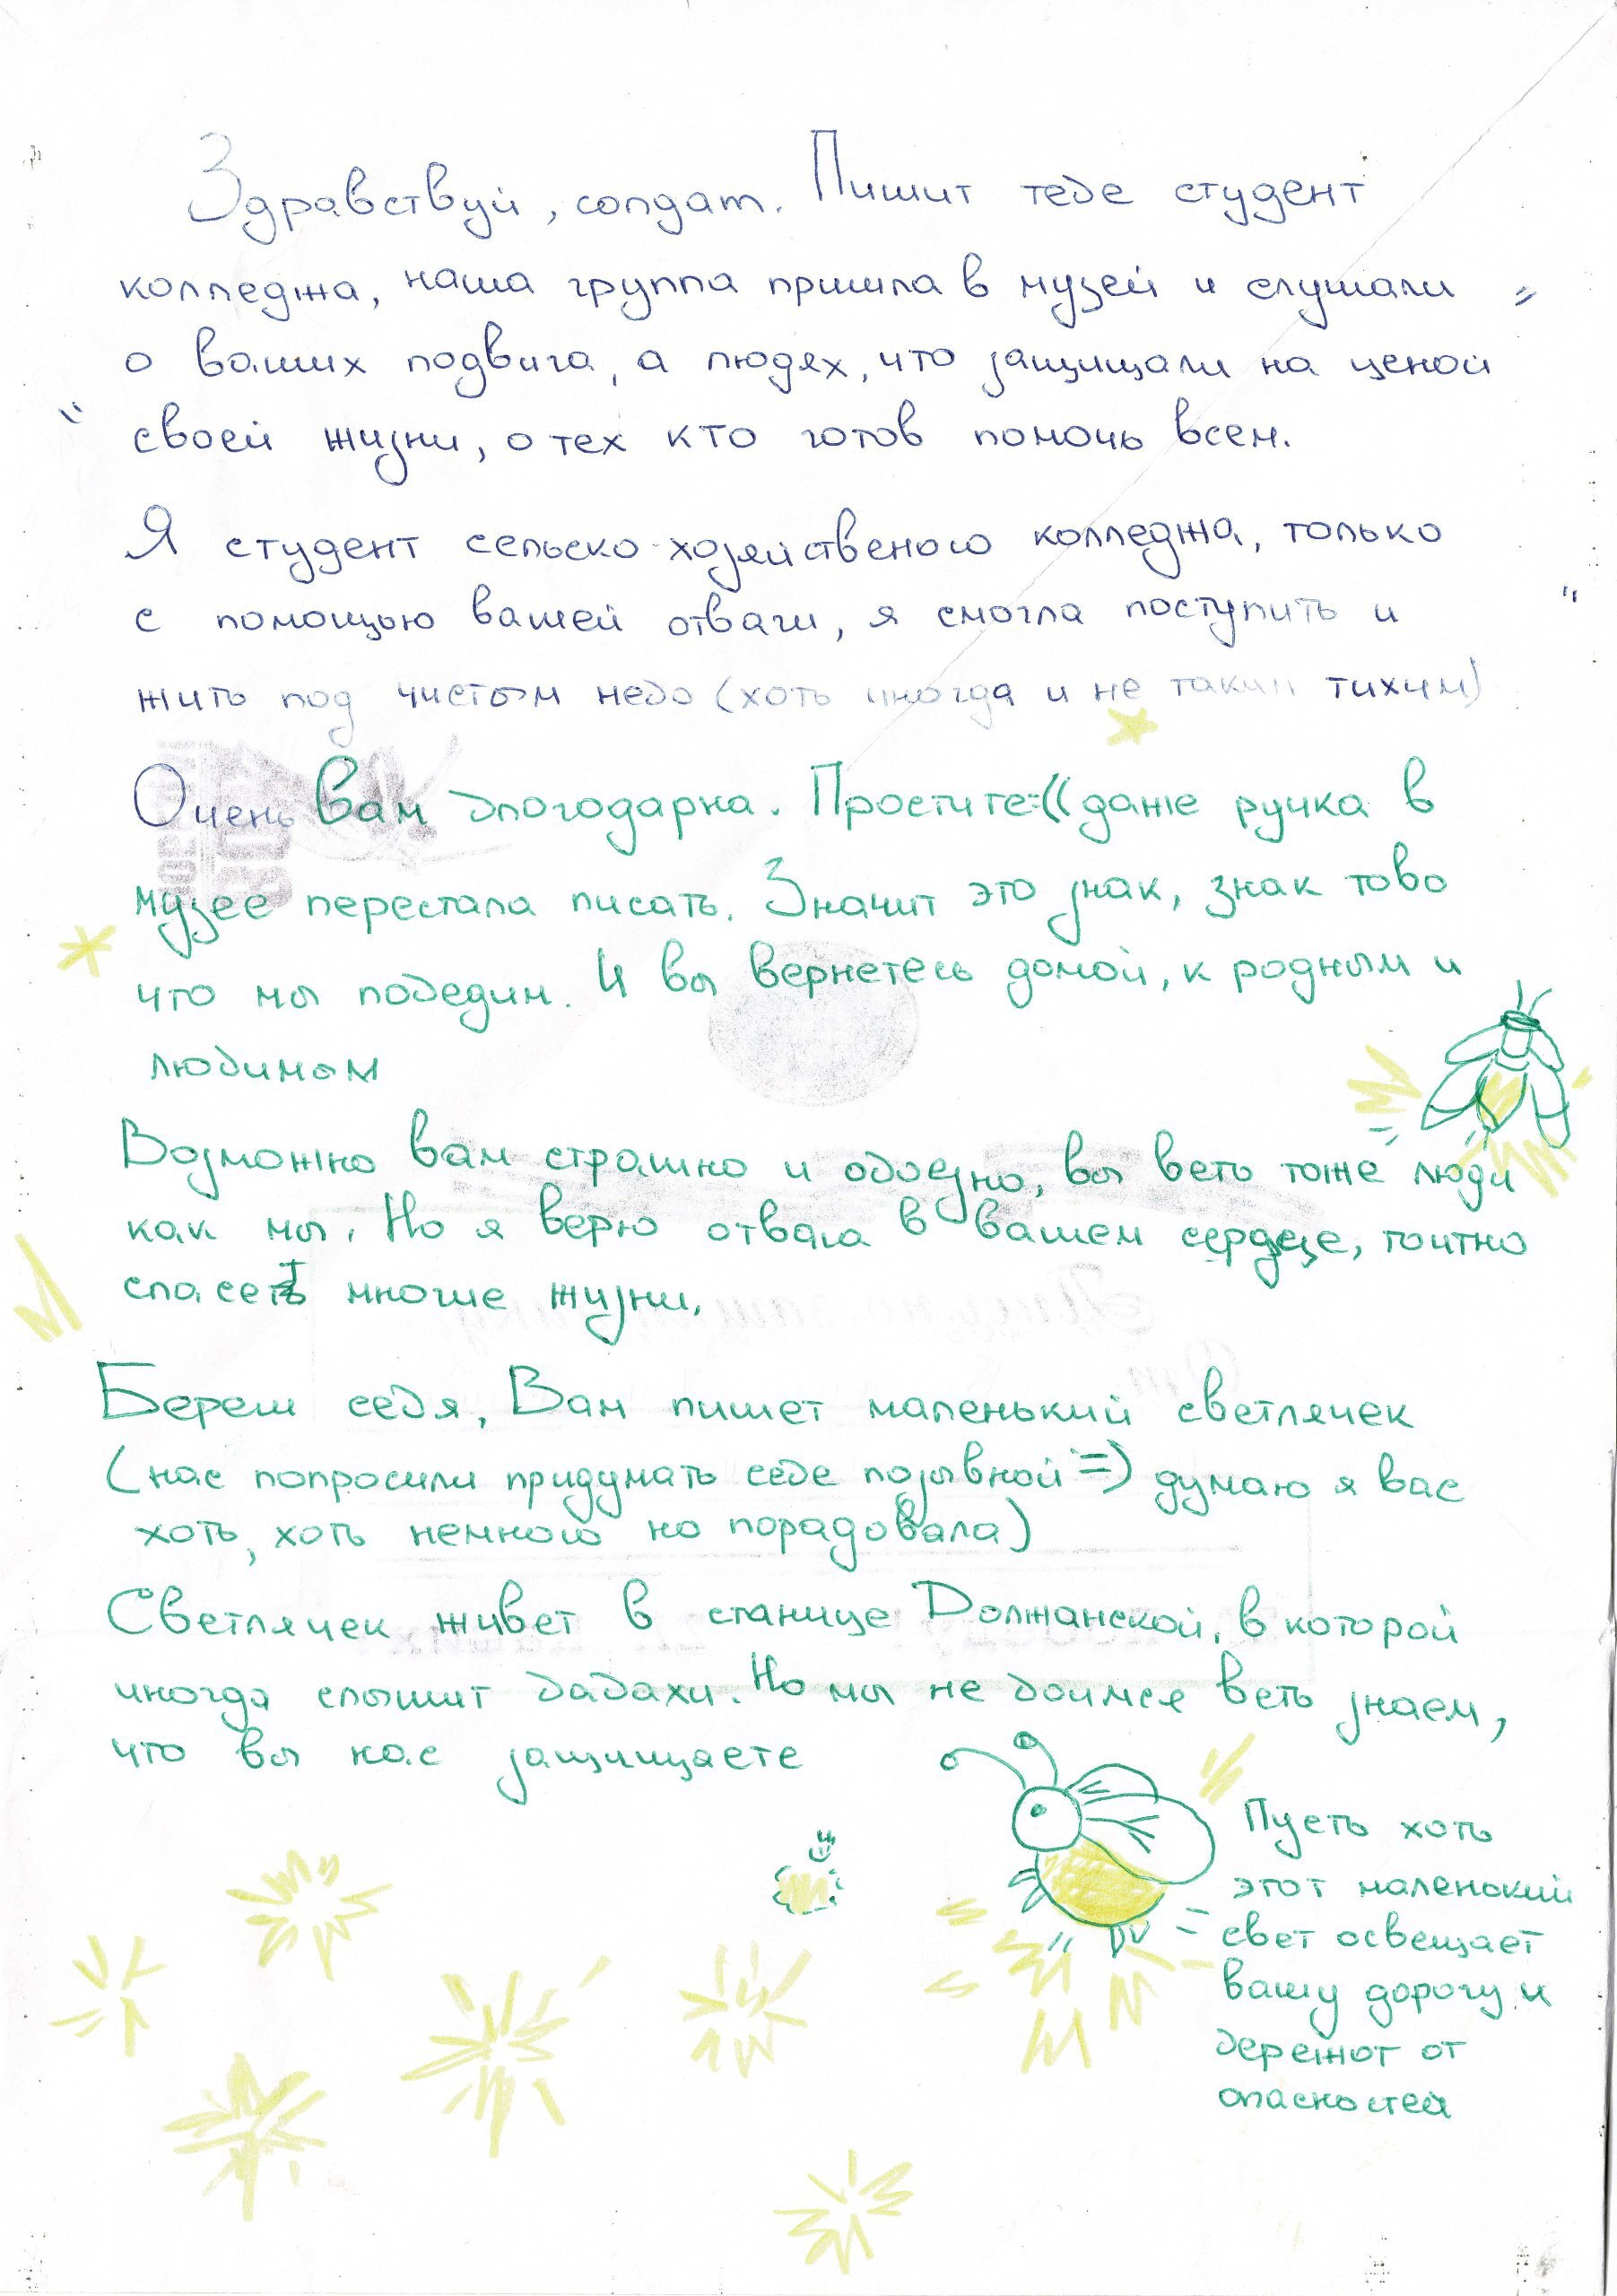 Здравствуй, солдат. Пишит тебе студент
колледжа, наша группа пришла в музей и слушали
о ваших подвига, а людях, что защищали на ценой
своей жизни, о тех кто готов помочь всем.
Я студент сельско-хозяйственого колледжа, только
с помощью вашей отваги, я смогла поступить и
жить под чистым небо (хоть иногда и не таким тихим)
Очень вам благодарна. Простите=(( даже ручка в
музее перестала писать. Значит это знак, знак тово
что мы победим. И вы вернетесь домой, к родным и
любимым
Возможно вам страшно и обоезно, вы веть тоже люди
как мы. Но я верю отвага в вашем сердце, точтно
спасет многие жизни.
Береш себя, Вам пишет маленький светлячек
(нас попросили придумать себе позывной =) думаю я вас
хоть, хоть немного но порадовала)
Светлячек живет в станице Должанской, в которой
иногда слышит бабахи. Но мы не боимся веть знаем,
что вы нас защищаете
Пусть хоть
этот маленький
свет освещает
вашу дорогу и
бережот от
опасностей